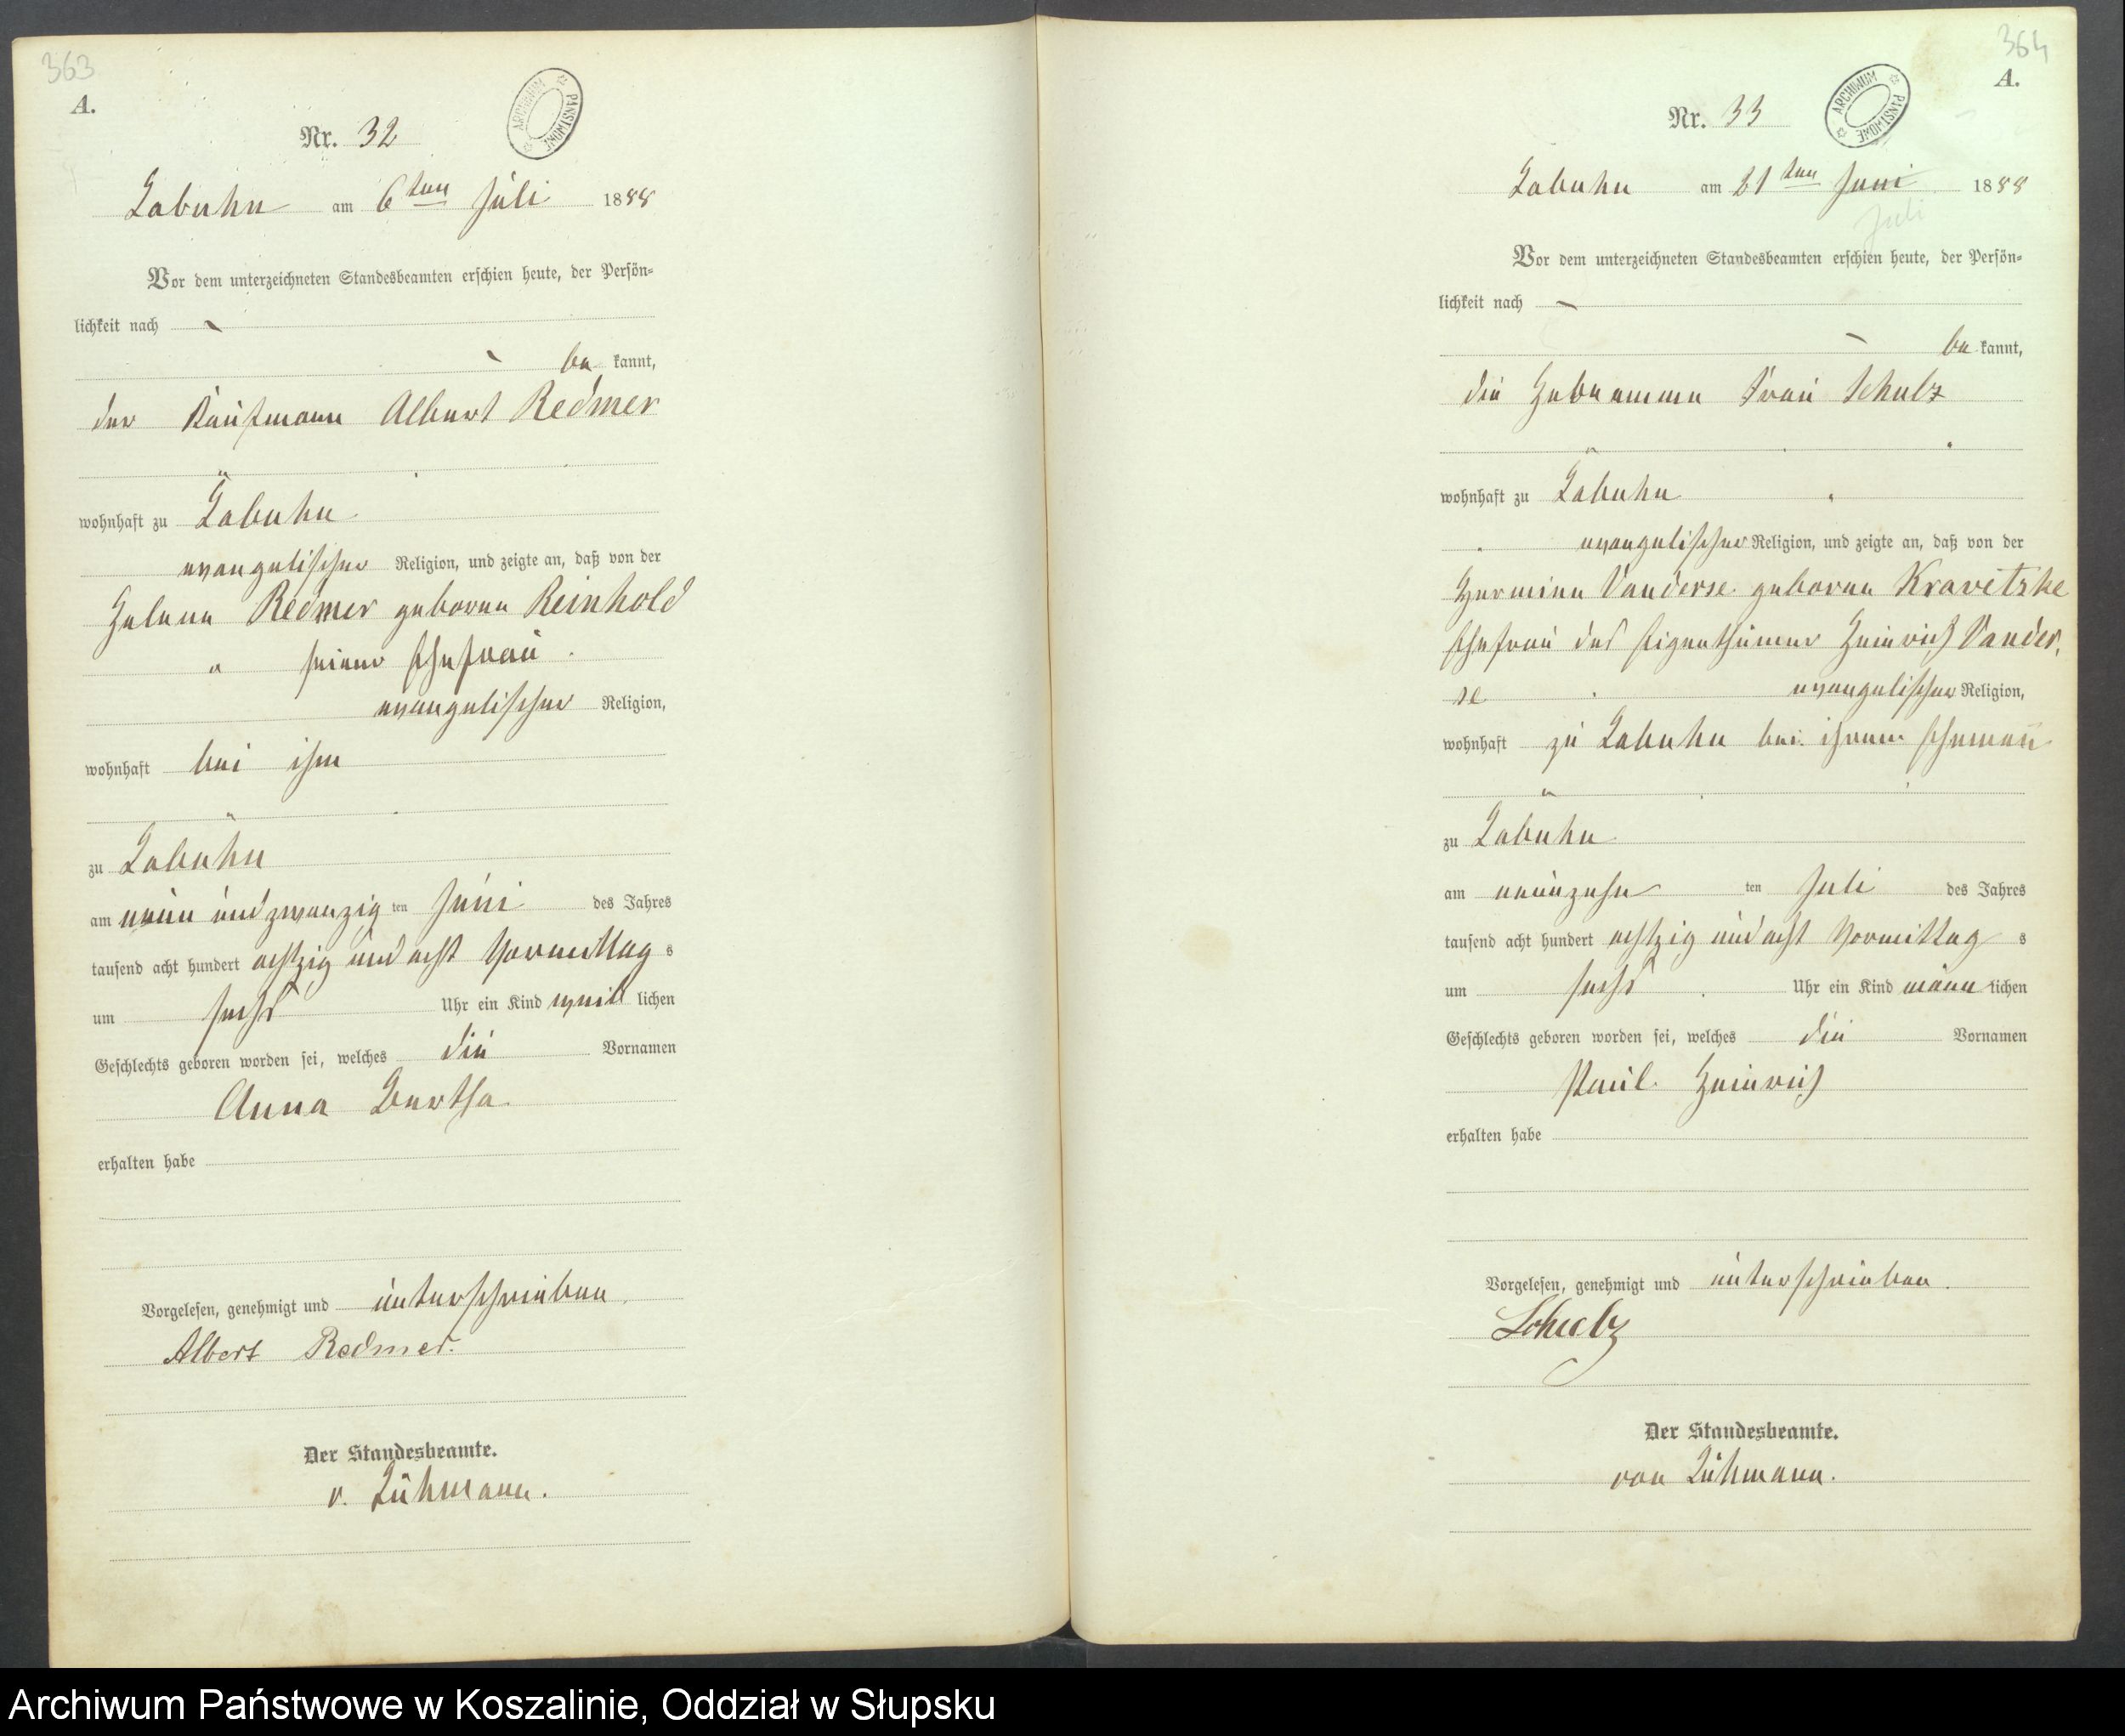 363
A.
ARCHIWUM PAŃSTWOWE
Nr. 32
Labuhn am 6ten Juli 1888
Vor dem unterzeichneten Standesbeamten erschien heute, der Persön=
lichkeit nach
be kannt,
der Kaufmann Albert Redmer
wohnhaft zu Labuhn
evangelischer Religion, und zeigte an, daß von der
Helene Redmer geborene Reinhold
seiner Ehefrau
evangelischer Religion,
wohnhaft bei ihm
zu Labuhn
am neun und zwanzig ten Juni des Jahres
tausend acht hundert achtzig und acht Vormittag s
um sechs Uhr ein Kind weib lichen
Geschlechts geboren worden sei, welches die Vornamen
Anna Bertha
erhalten habe
Vorgelesen, genehmigt und unterschrieben.
Albert Redmer.
Der Standesbeamte.
v. Lühmann.
364
A.
ARCHIWUM PAŃSTWOWE
Nr. 33
Labuhn am 21ten Juni 1888
Juli
Vor dem unterzeichneten Standesbeamten erschien heute, der Persön=
lichkeit nach
be kannt,
die Hebeamme Frau Schulz
wohnhaft zu Labuhn
evangelischer Religion, und zeigte an, daß von der
Hermine Vanderse geborene Kravetzke
Ehefrau des Eigenthümer Heinrich Vander,
se evangelischer Religion,
wohnhaft zu Labuhn bei ihrem Ehemann
zu Labuhn
am neunzehn ten Juli des Jahres
tausend acht hundert achtzig und acht Vormittag s
um sechs Uhr ein Kind männ lichen
Geschlechts geboren worden sei, welches die Vornamen
Paul Heinrich
erhalten habe
Vorgelesen, genehmigt und unterschrieben.
Schulz
Der Standesbeamte.
von Lühmann.
Archiwum Państwowe w Koszalinie, Oddział w Słupsku